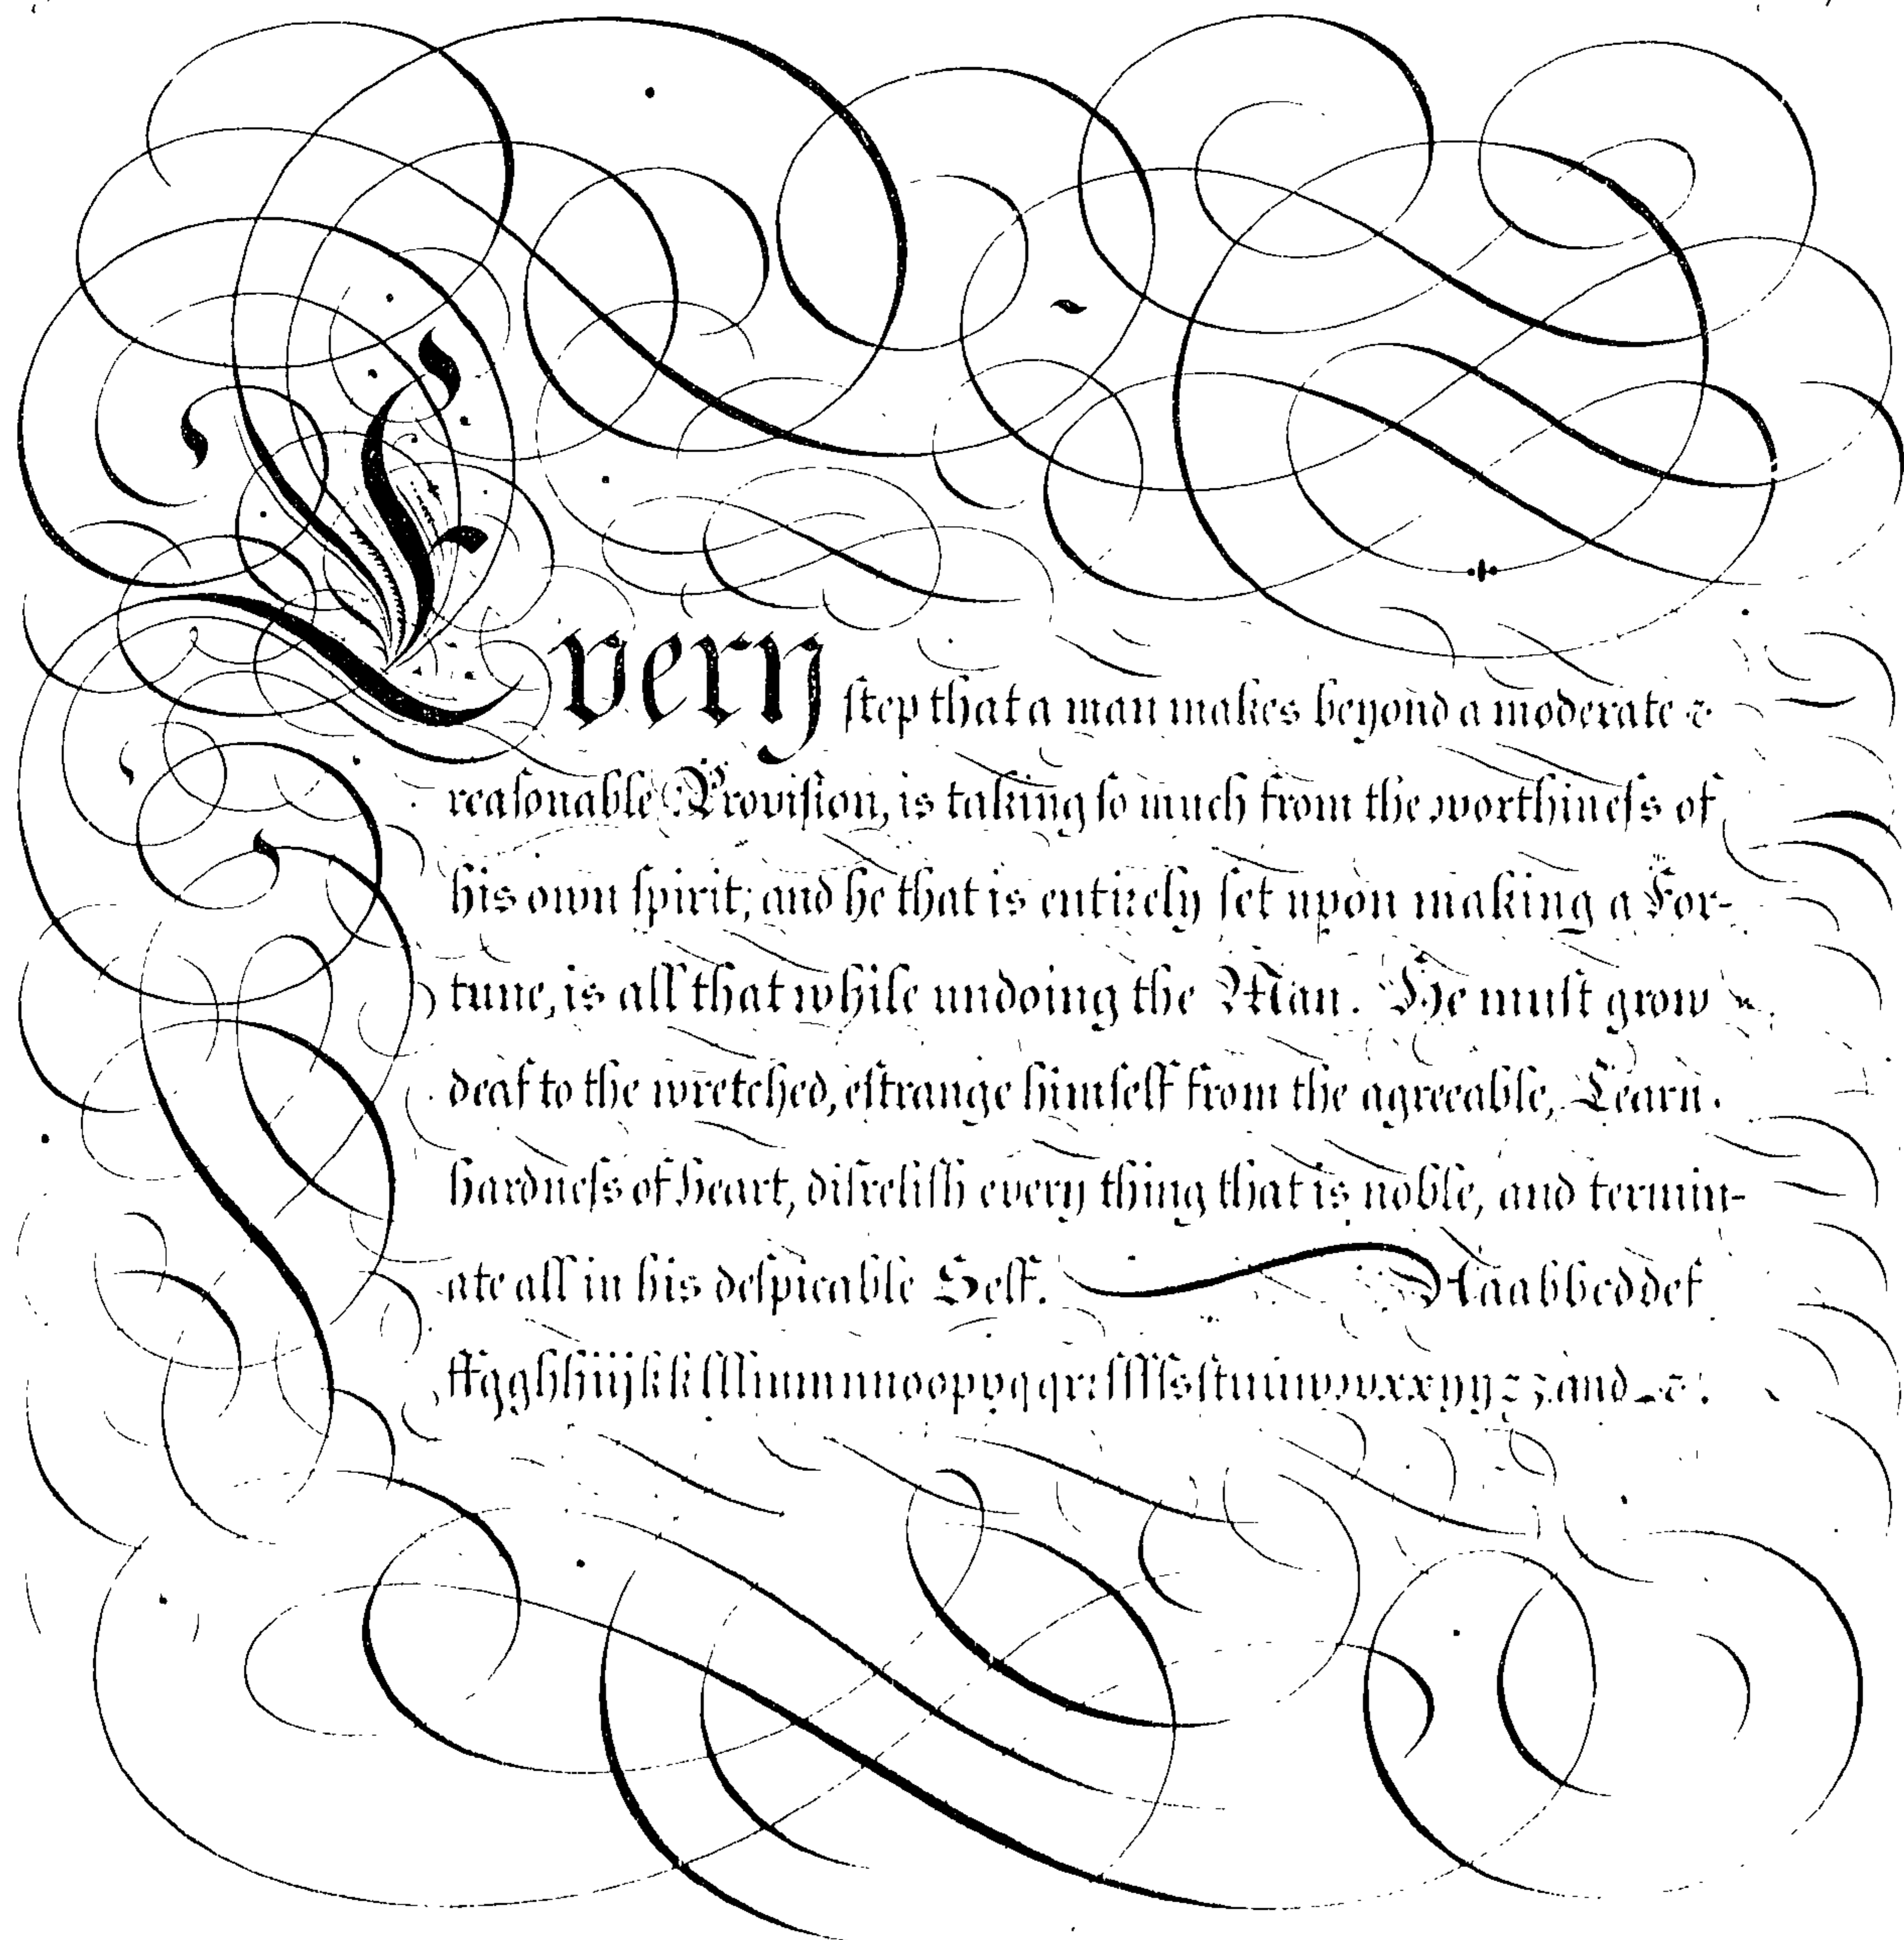 Every ſtep that a man makes beyond a moderate &
reaſonable Proviſion, is taking ſo much from the worthineſs of
his own ſpirit; and he that is entirely ſet upon making a For-
tune, is all that while undoing the Man. He muſt grow
deaf to the wretched, eſtrange himſelf from the agreeable, Learn
hardneſs of heart, diſreliſh every thing that is noble, and termin-
ate all in his deſpicable Self. Aaabbcddef